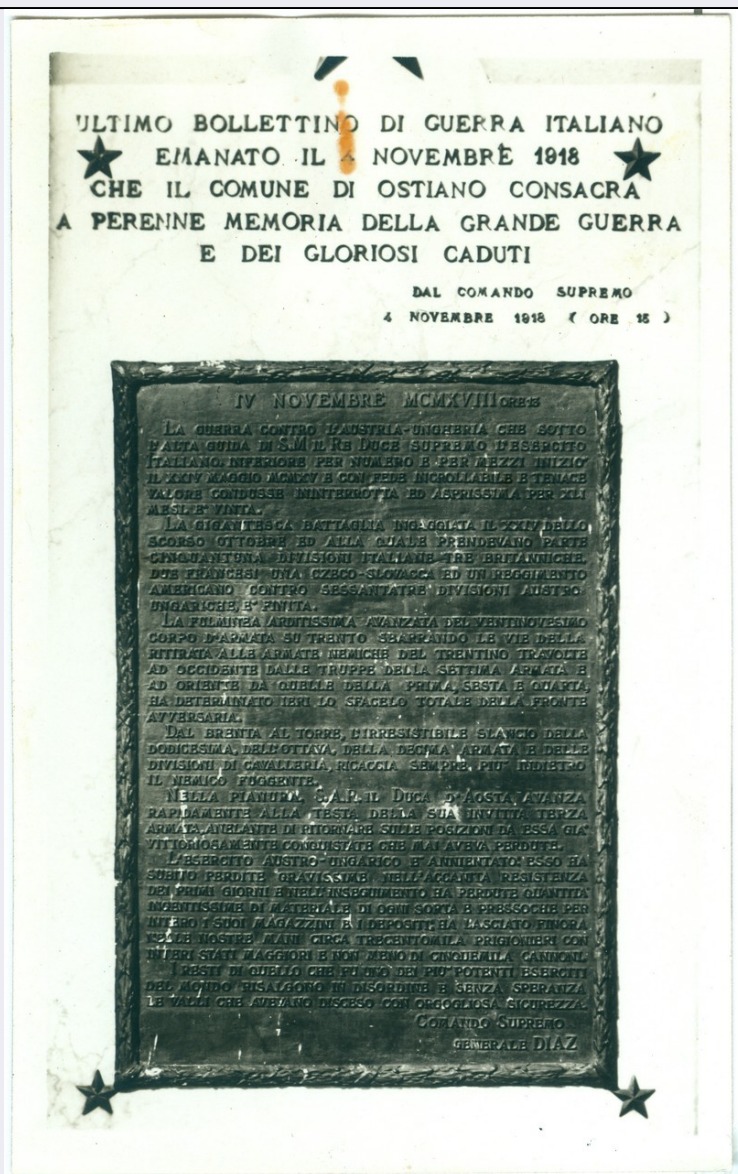 ULTIMO BOLLETTINO DI GUERRA ITALIANO
EMANATO IL 4 NOVEMBRE 1918
CHE IL COMUNE DI OSTIANO CONSACRA
A PERENNE MEMORIA DELLA GRANDE GUERRA
E DEI GLORIOSI CADUTI
DAL COMANDO SUPREMO
4 NOVEMBRE 1918 ( ORE 15 )
IV NOVEMBRE MCMXVIII ORE 15
LA GUERRA CONTRO L'AUSTRIA-UNGHERIA CHE SOTTO
L'ALTA GUIDA DI S.M. IL RE DUCE SUPREMO L'ESERCITO
ITALIANO, INFERIORE PER NUMERO E PER MEZZI INIZIO'
IL XXIV MAGGIO MCMXV E CON FEDE INCROLLABILE E TENACE
VALORE CONDUSSE ININTERROTTA ED ASPRISSIMA PER XLI
MESI, E' VINTA.
LA GIGANTESCA BATTAGLIA INGAGGIATA IL XXIV DELLO
SCORSO OTTOBRE ED ALLA QUALE PRENDEVANO PARTE
CINQUANTUNA DIVISIONI ITALIANE TRE BRITANNICHE,
DUE FRANCESI UNA CZECO-SLOVACCA ED UN REGGIMENTO
AMERICANO CONTRO SESSANTATRE DIVISIONI AUSTRO-
UNGARICHE, E' FINITA.
LA FULMINEA ARDITISSIMA AVANZATA DEL VENTINOVESIMO
CORPO D'ARMATA SU TRENTO SBARRANDO LE VIE DELLA
RITIRATA ALLE ARMATE NEMICHE DEL TRENTINO TRAVOLTE
AD OCCIDENTE DALLE TRUPPE DELLA SETTIMA ARMATA E
AD ORIENTE DA QUELLE DELLA PRIMA, SESTA E QUARTA,
HA DETERMINATO IERI LO SFACELO TOTALE DELLA FRONTE
AVVERSARIA.
DAL BRENTA AL TORRE, L'IRRESISTIBILE SLANCIO DELLA
DODICESIMA, DELL'OTTAVA, DELLA DECIMA ARMATA E DELLE
DIVISIONI DI CAVALLERIA, RICACCIA SEMPRE PIU' INDIETRO
IL NEMICO FUGGENTE.
NELLA PIANURA, S.A.R. IL DUCA D'AOSTA AVANZA
RAPIDAMENTE ALLA TESTA DELLA SUA INVITTA TERZA
ARMATA, ANELANTE DI RITORNARE SULLE POSIZIONI DA ESSA GIA'
VITTORIOSAMENTE CONQUISTATE CHE MAI AVEVA PERDUTE.
L'ESERCITO AUSTRO-UNGARICO E' ANNIENTATO: ESSO HA
SUBITO PERDITE GRAVISSIME NELL'ACCANITA RESISTENZA
DEI PRIMI GIORNI E NELL'INSEGUIMENTO HA PERDUTE QUANTITA'
INGENTISSIME DI MATERIALE DI OGNI SORTA E PRESSOCHE PER
INTERO I SUOI MAGAZZINI E I DEPOSITI: HA LASCIATO FINORA
NELLE NOSTRE MANI CIRCA TRECENTOMILA PRIGIONIERI CON
INTERI STATI MAGGIORI E NON MENO DI CINQUEMILA CANNONI.
I RESTI DI QUELLO CHE FU UNO DEI PIU' POTENTI ESERCITI
DEL MONDO RISALGONO IN DISORDINE E SENZA SPERANZA
LE VALLI CHE AVEVANO DISCESO CON ORGOGLIOSA SICUREZZA.
COMANDO SUPREMO
GENERALE DIAZ